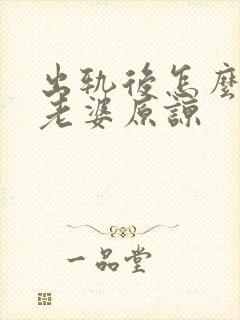 出軌後怎麼
老婆原諒
一品堂